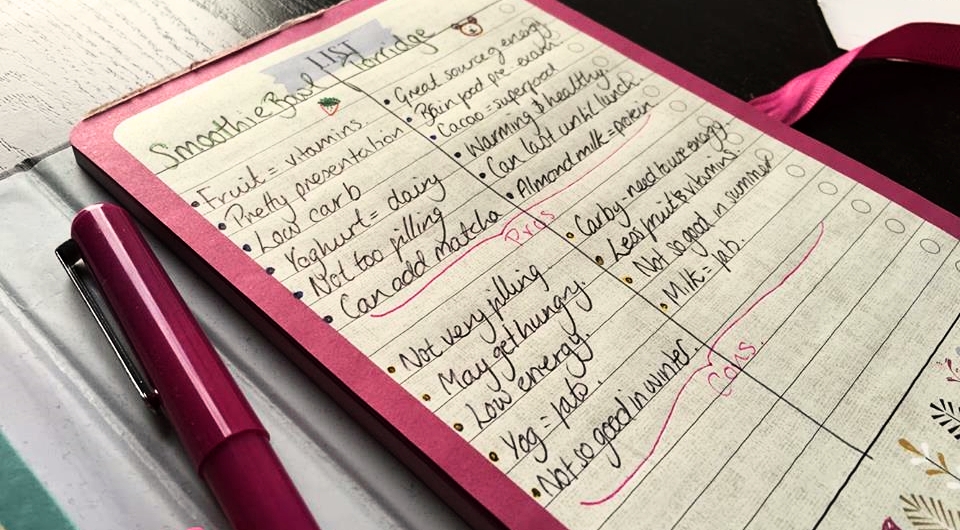 LIST
Smoothie Bowl
Fruit = vitamins
Pretty presentation
Low carb
Yoghurt = dairy
Not too filling
Can add matcha
Porridge
Great source of energy
Bain food pre exam
Cacao = superfood
Warming & healthy
Can last until lunch
Almond milk = protein
Pros
Not very filling
May get hungry.
Low energy
Yog =
Not so good in winter.
Carby - need to use energy
Less fruit & vitamins
Not so good in summer
Milk =
Cons.